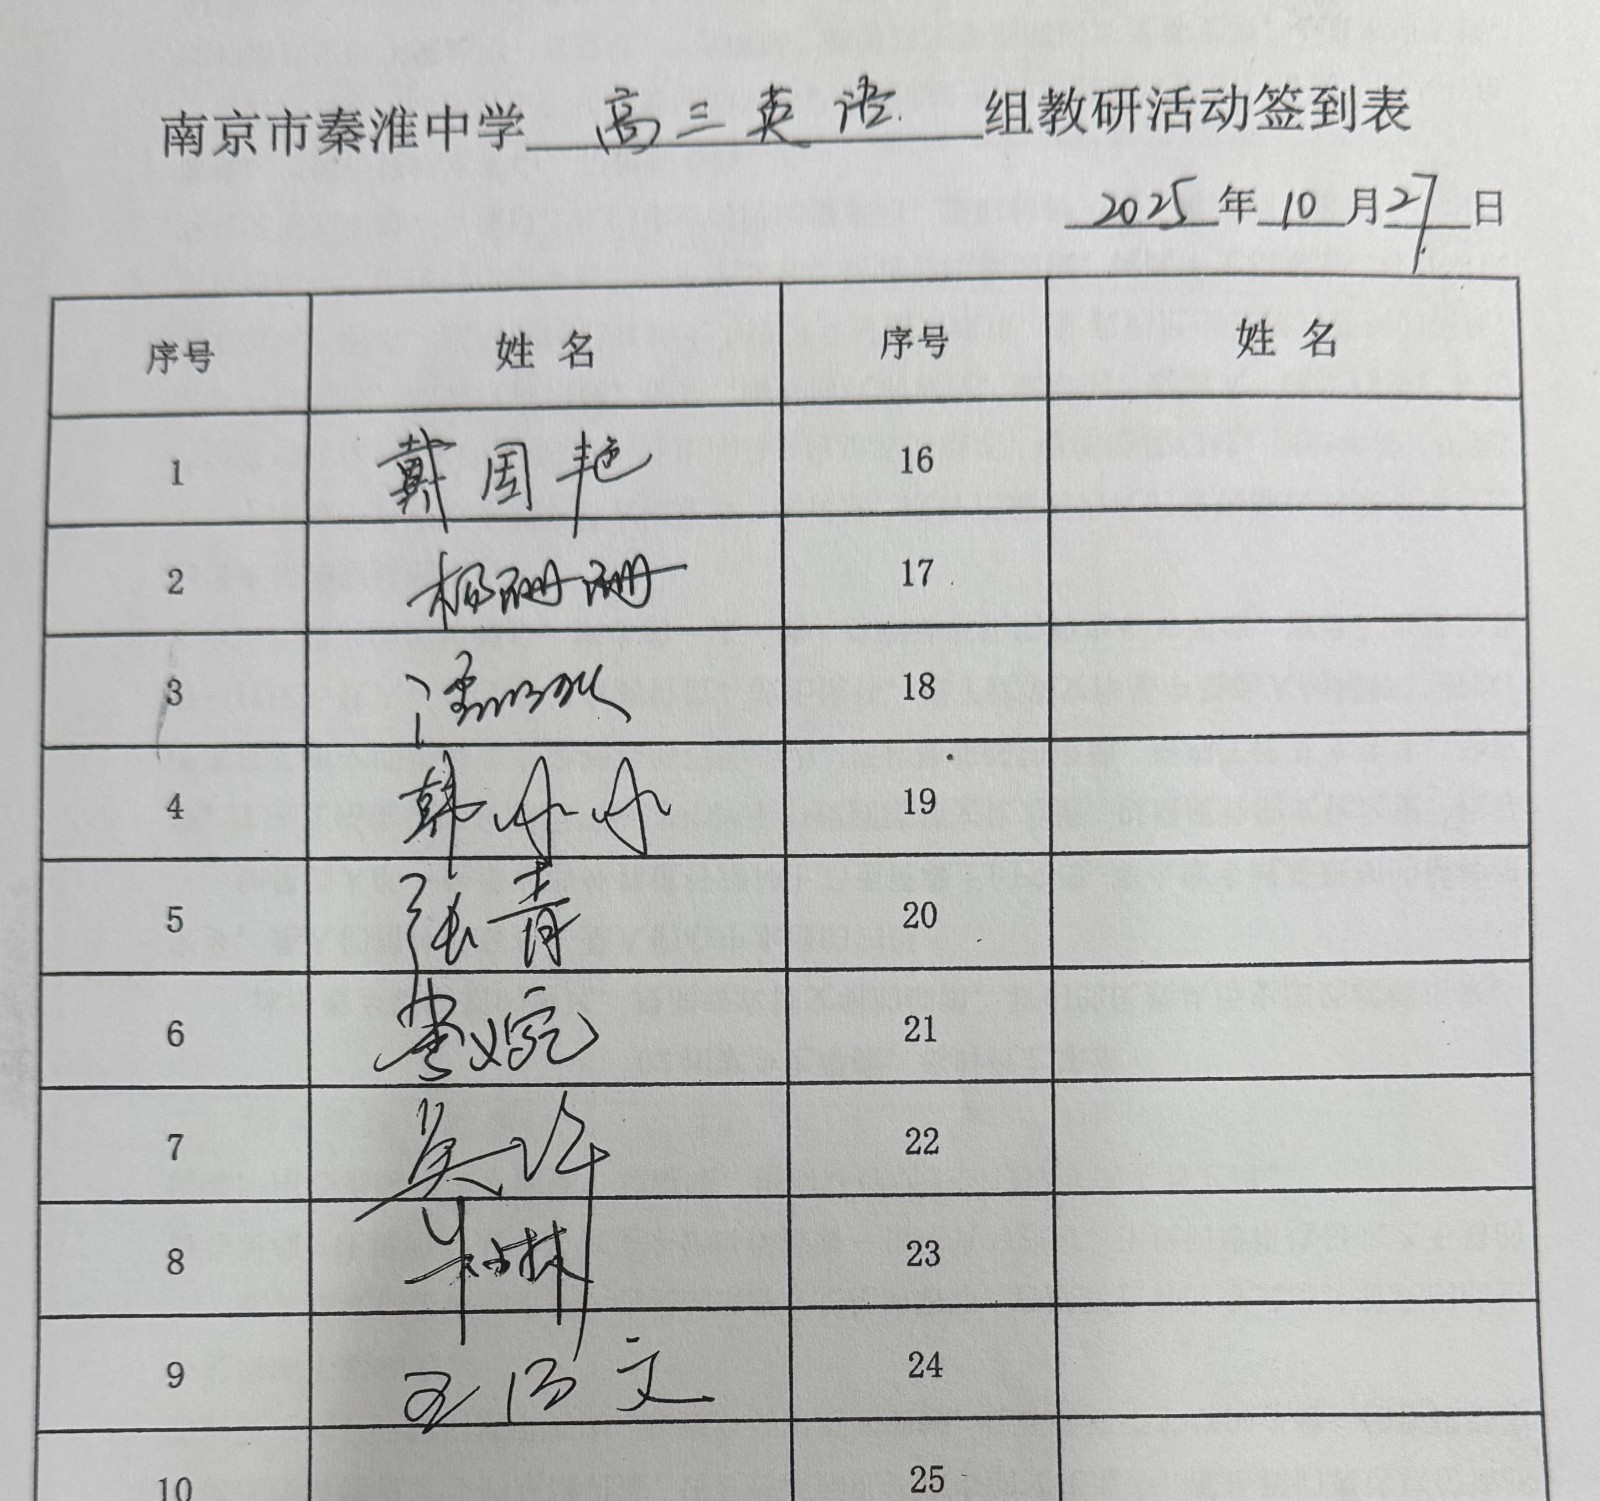 南京市秦淮中学 高三英语 组教研活动签到表
2025 年 10 月 27 日
序号 姓名 序号 姓名
1 戴周艳 16
2 杨珊珊 17
3 18
4 韩小小 19
5 张青 20
6 娄婉 21
7 吴许 22
8 朱林 23
9 王 文 24
10 25